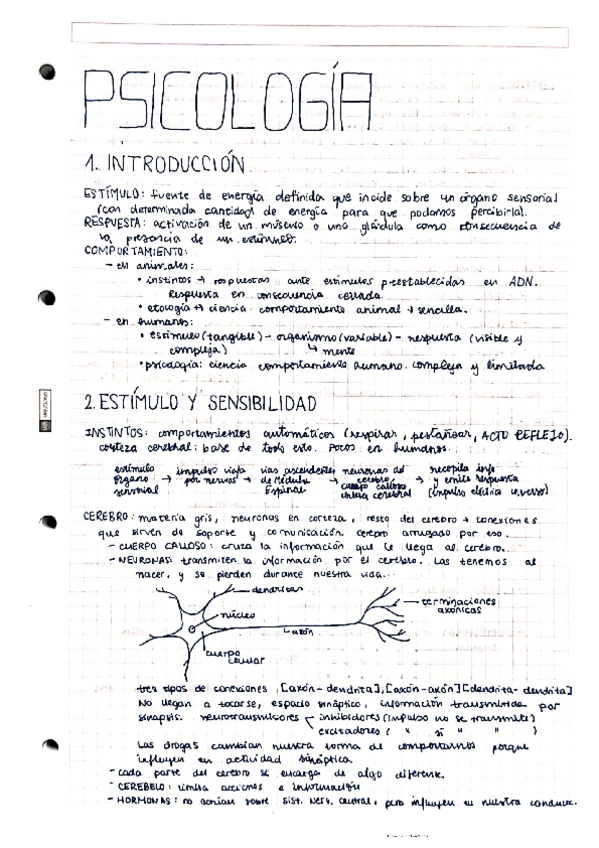 PSICOLOGÍA
1. INTRODUCCIÓN
ESTÍMULO: fuente de energía definida que incide sobre un órgano sensorial
(con determinada cantidad de energía para que podamos percibirla).
RESPUESTA: activación de un músculo o una glándula como consecuencia de
la presencia de un estímulo.
COMPORTAMIENTO:
- en animales:
• instintos → respuestas ante estímulos preestablecidas en ADN.
Respuesta en consecuencia cerrada.
• etología → ciencia comportamiento animal → sencilla.
- en humanos:
• estímulo (tangible) - organismo (variable) - respuesta (visible y
compleja) ↳ mente
• psicología: ciencia comportamiento humano. compleja y limitada
2. ESTÍMULO Y SENSIBILIDAD
INSTINTOS: comportamientos automáticos (respirar, pestañear, ACTO REFLEJO).
corteza cerebral: base de todo esto. Pocos en humanos.
estímulo órgano sensorial → impulso viaja por nervios → vías ascendentes de Médula Espinal → neuronas del cerebro, cuerpo calloso, corteza cerebral → recopila info y emite respuesta (impulso eléctrico inverso)
CEREBRO: materia gris, neuronas en corteza, resto del cerebro → conexiones
que sirven de soporte y comunicación. cerebro arrugado por eso.
- CUERPO CALLOSO: cruza la información que le llega al cerebro.
- NEURONAS: transmiten la información por el cerebro. Las tenemos al
nacer, y se pierden durante nuestra vida.
dendritas
núcleo
axón
terminaciones
axónicas
cuerpo
celular
tres tipos de conexiones, [axón-dendrita], [axón-axón] [dendrita-dendrita]
No llegan a tocarse, espacio sináptico, información transmitida por
sinapsis. neurotransmisores inhibidores (impulso no se transmite)
excitadores ( " sí " " )
Las drogas cambian nuestra forma de comportarnos porque
influyen en actividad sináptica.
- cada parte del cerebro se encarga de algo diferente.
- CEREBELO: acciones e información
- HORMONAS: no actúan sobre Sist. Nerv. Central, pero influyen en nuestra conducta.